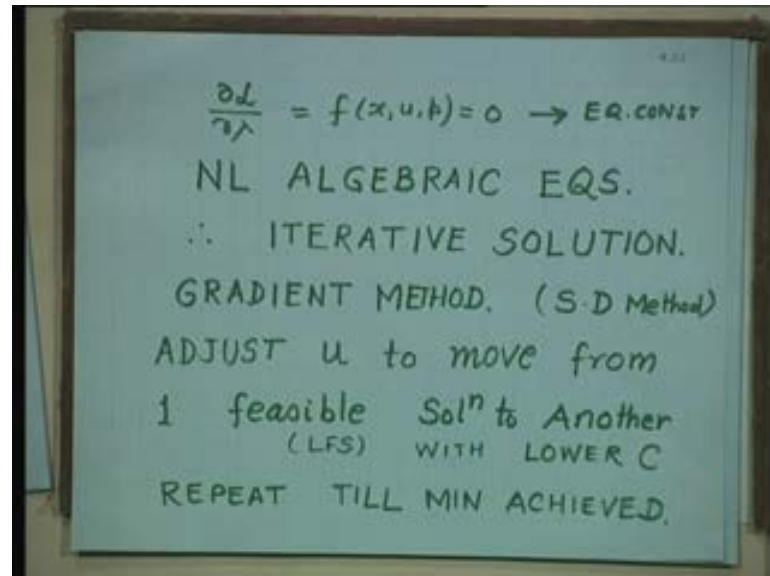 ∂L/∂λ = f(x, u, p) = 0 → EQ. CONST
NL ALGEBRAIC EQS.
∴ ITERATIVE SOLUTION.
GRADIENT METHOD. (S.D Method)
ADJUST u to move from
1 feasible Solⁿ to Another
(LFS) WITH LOWER C
REPEAT TILL MIN ACHIEVED.